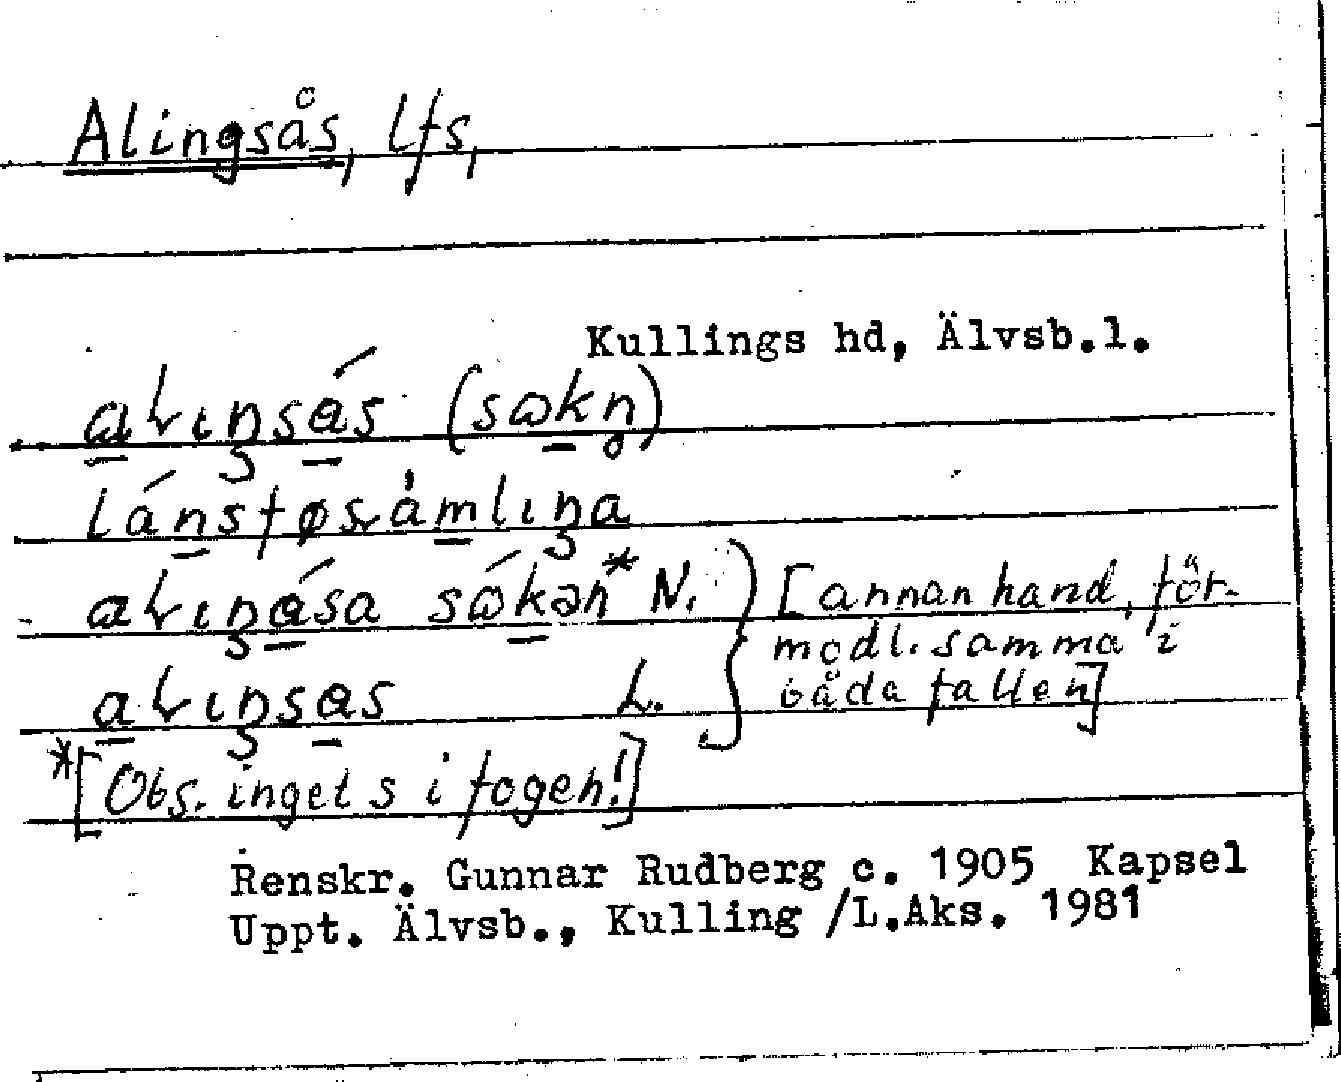 Alingsås, lfs,
Kullings hd, Älvsb.l.
alıŋsás (sωkn̥)
lánsføsràmlıŋa
alıŋása sώkən* N. } [annan hand, för-
modl. samma i
alıŋsas L. båda fallen]
*[Obs. inget s i fogen!]
Renskr. Gunnar Rudberg c. 1905 Kapsel
Uppt. Älvsb., Kulling /L.Aks. 1981